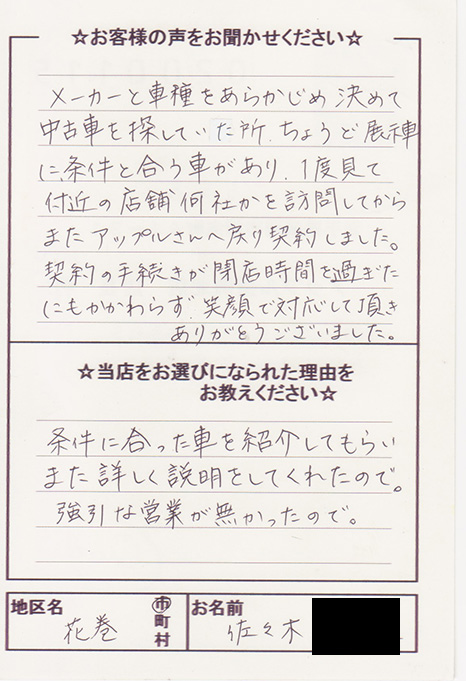 ☆お客様の声をお聞かせください☆
メーカーと車種をあらかじめ決めて
中古車を探していた所、ちょうど展示車
に条件と合う車があり、1度見て
付近の店舗何社かを訪問してから
またアップルさんへ戻り契約しました。
契約の手続きが閉店時間を過ぎた
にもかかわらず笑顔で対応して頂き
ありがとうございました。
☆当店をお選びになられた理由を
お教えください☆
条件に合った車を紹介してもらい
また詳しく説明をしてくれたので。
強引な営業が無かったので。
地区名 花巻 市町村 お名前 佐々木